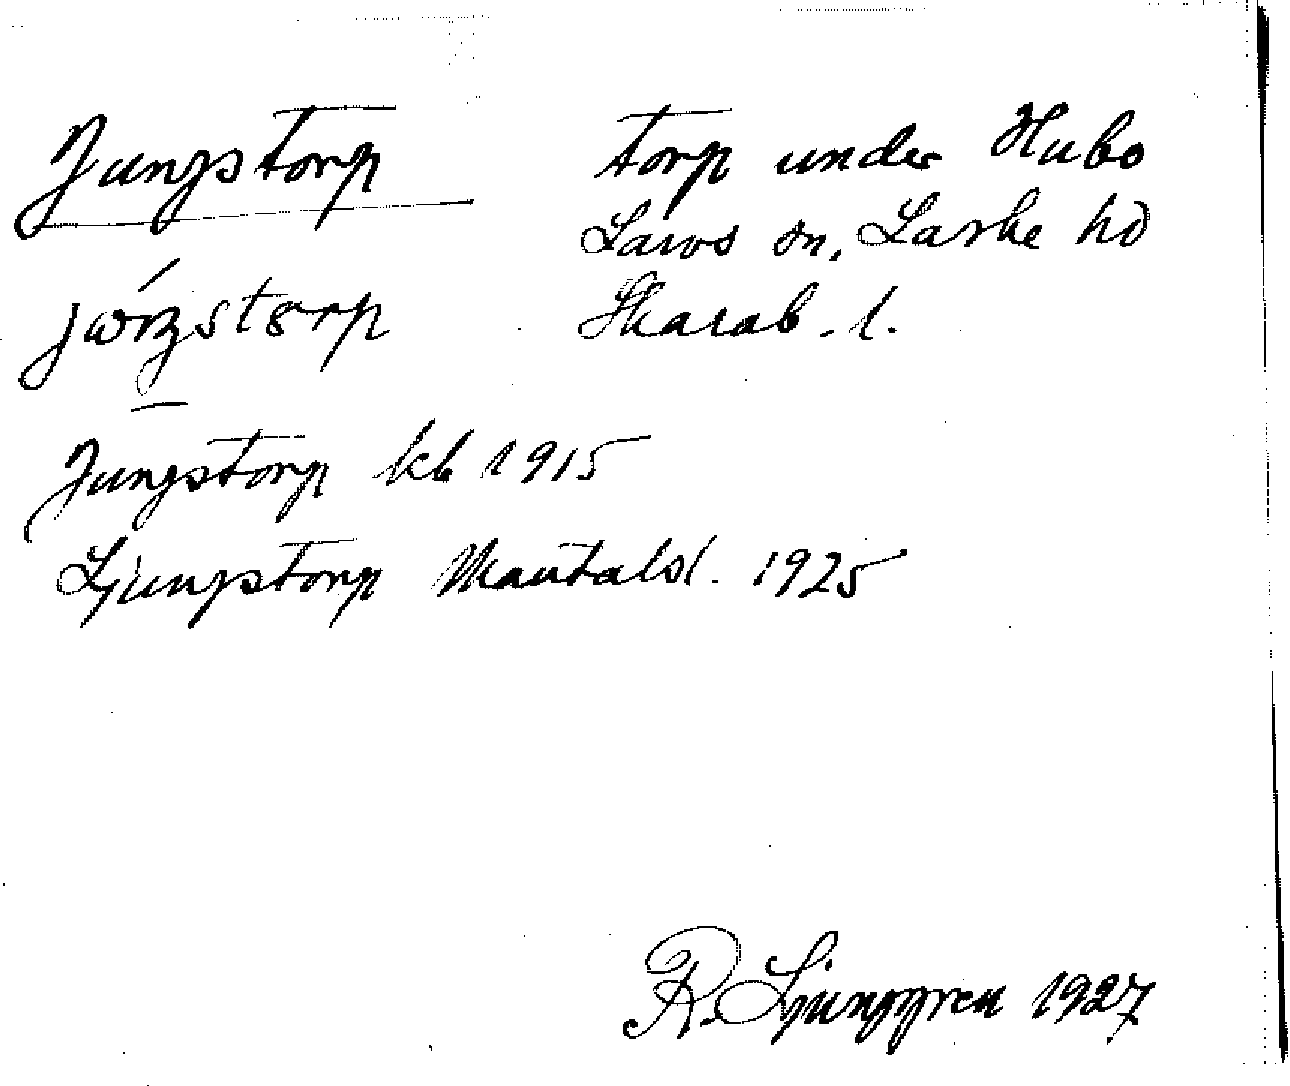 Jungstorp
torp under Hubo
Larvs sn, Laske hd
Skarab. l.
Jungstorp kb 1915
Ljungstorp Mantalsl. 1925
R. Ljunggren 1927